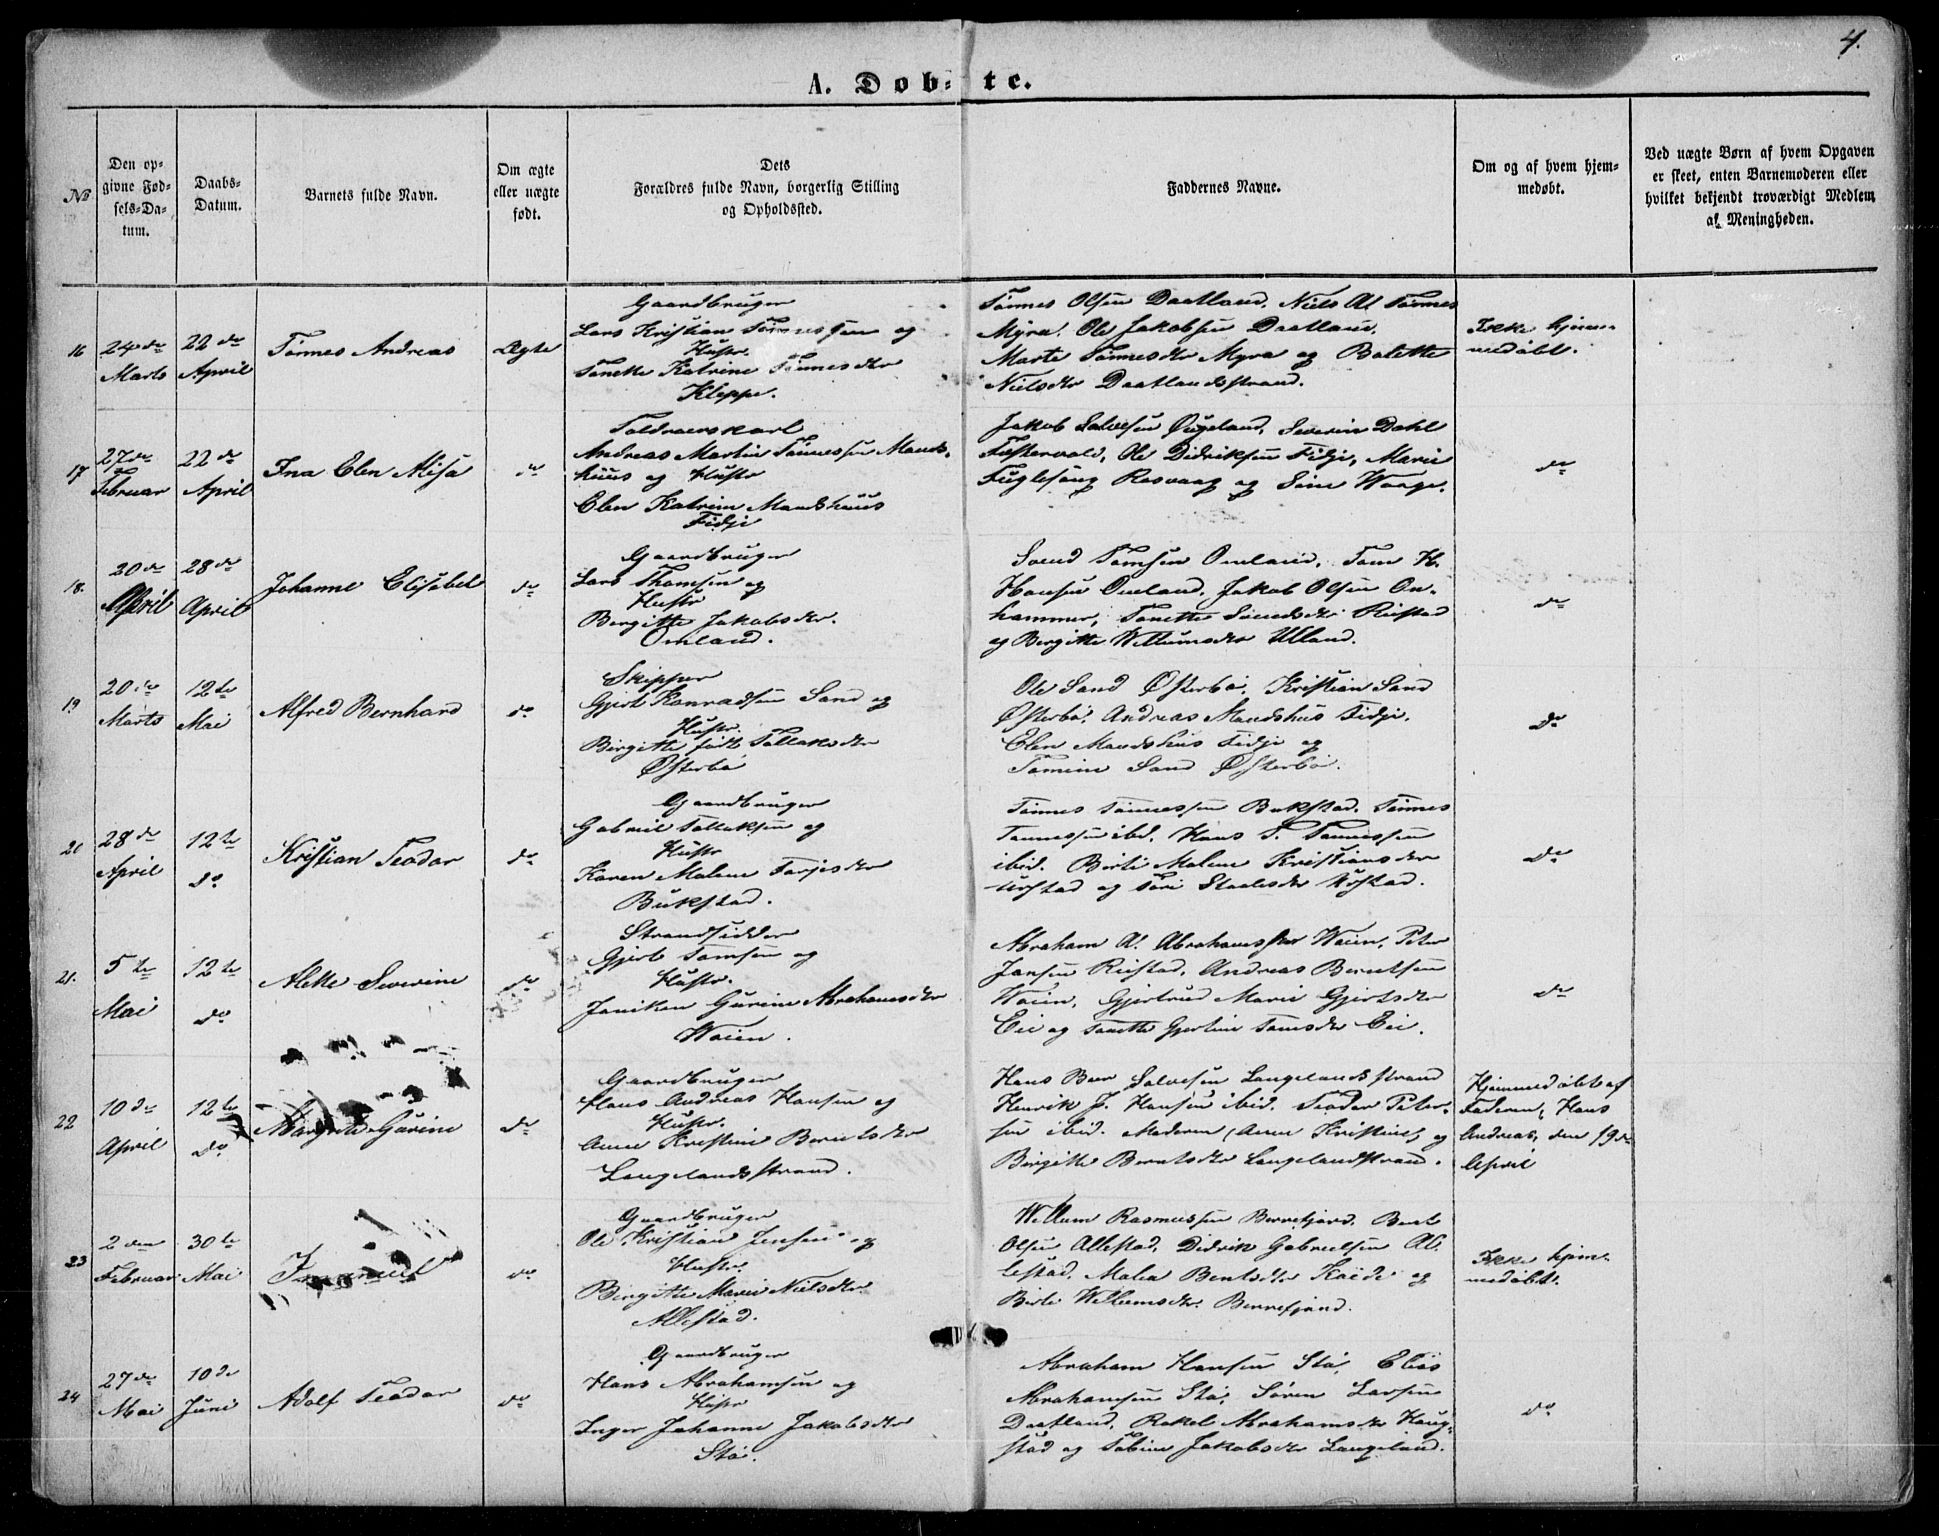 4.
A. Döbte.
No
Den op-
givne Fød-
sels-Da-
tum.
Daabs-
Datum.
Barnets fulde Navn.
Om ægte
eller uægte
født.
Dets
Forældres fulde Navn, borgerlig Stilling
og Opholdssted.
Faddernes Navne.
Om og af hvem hjem-
medøbt.
Ved uægte Børn af hvem Opgaven
er skeet, enten Barnemoderen eller
hvilket bekjendt troværdigt Medlem
af Meningheden.
16
24de
Marts
22de
April
Tönnes Andreas
Ægte
Gaardbruger
Lars Kristian Tönnessen og
Hustr.
Tonette Katrine Tönnesdtr
Kleppe.
Tönnes Olsen Daatland, Niels Al Tönnes
Myra, Ole Jakobsen Daatland,
Marte Tönnesdtr Myra og Bolette
Nielsdtr Daatlandsstrand.
Ikke hjem-
medøbt.
17
27de
Februar
22de
April
Ina Elen Alisa
do
Toldroerskarl
Andreas Martin Tönnessen Mands-
huus og Hustr
Elen Katrine Mandshuus
Fidje
Jakob Salvesen Øigeland, Severin Dahl
Ole Didriksen Fidje, Marie
Fuglesang Rasvaag og Sine Waage.
do
18.
20de
April
28de
April
Johanne Elisabet
do
Gaardbruger
Lars Thomsen og
Hustr
Bergitte Jakobsdtr.
Omland.
Svend Tomsen Omland, Tom H.
Hansen Omland, Jakob Olsen On-
hammer, Tonette Svendsdtr Rustad
og Bergitte Willumsdtr Ulland.
do
19
20de
Marts
12te
Mai
Alfred Bernhard
do
Skipper
Gjert Konradsen Sand og
Hustr.
Birgitte født Tollaksdtr
Østerbö
Ole Sand Østerbö, Kristian Sand
Østerbö, Andreas Mandshus Fidje,
Elen Mandshus Fidje og
Tomine Sand Østerbö.
do
20
28de
April
12te
do
Kristian Teodor
do
Gaardbruger
Gabriel Tollaksen og
Hustr
Karen Malene Terjesdtr
Bukstad.
Tönnes Tönnessen Bukstad, Tönnes
Tönnessen ibid. Hans T. Tönnessen
ibid. Berte Malene Kristiansdtr
Urstad og Siri Staalesdtr Urstad.
do
21.
5te
Mai
12te
do
Alette Severine
do
Strandsidder
Gjert Tomsen og
Hustr.
Janiken Gurine Abrahamsdtr
Woien.
Abraham A. Woien, Peter
Jansen Rustad, Andreas Berntsen
Woien, Gjertrud Marie Gjertsdtr
Eie og Tonette Gjertine Tomsdtr Eie.
do
22
10de
April
12te
do
Margrete Gurine
do
Gaardbruger
Hans Andreas Hansen og
Hustr.
Anne Kristine Berntsdtr
Langelandsstrand.
Hans Salvesen Langelandsstrand
Henrik J. Hansen ibid. Teodor Peter-
sen ibid. Moderen (Anne Kristine) og
Birgitte Berntsdtr Langelandstrand.
Hjemmedøbt af
Faderen, Hans
Andreas, den 19de
April
23
2den
Februar
30te
Mai
Imanuel
do
Gaardbruger
Ole Kristian Jensen og
Hustr.
Birgitte Marie Nielsdtr.
Allestad.
Willum Rasmussen Berrefjord, Bent
Olsen Allestad, Didrik Gabrielsen Al-
lestad, Malea Bentsdtr og
Berte Willumsdtr. Berrefjord.
Ikke hjem-
medøbt.
24
27de
Mai
10de
Juni
Adolf Teodor
do
Gaardbruger
Hans Abrahamsen og
Hustr
Inger Johanne Jakobsdtr
Stö.
Abraham Hansen Stö, Elias
Abrahamsen Stö, Sören Larsen
Daatland, Rakel Abrahamsdtr Haug-
stad og Tobine Jakobsdtr Langeland.
do